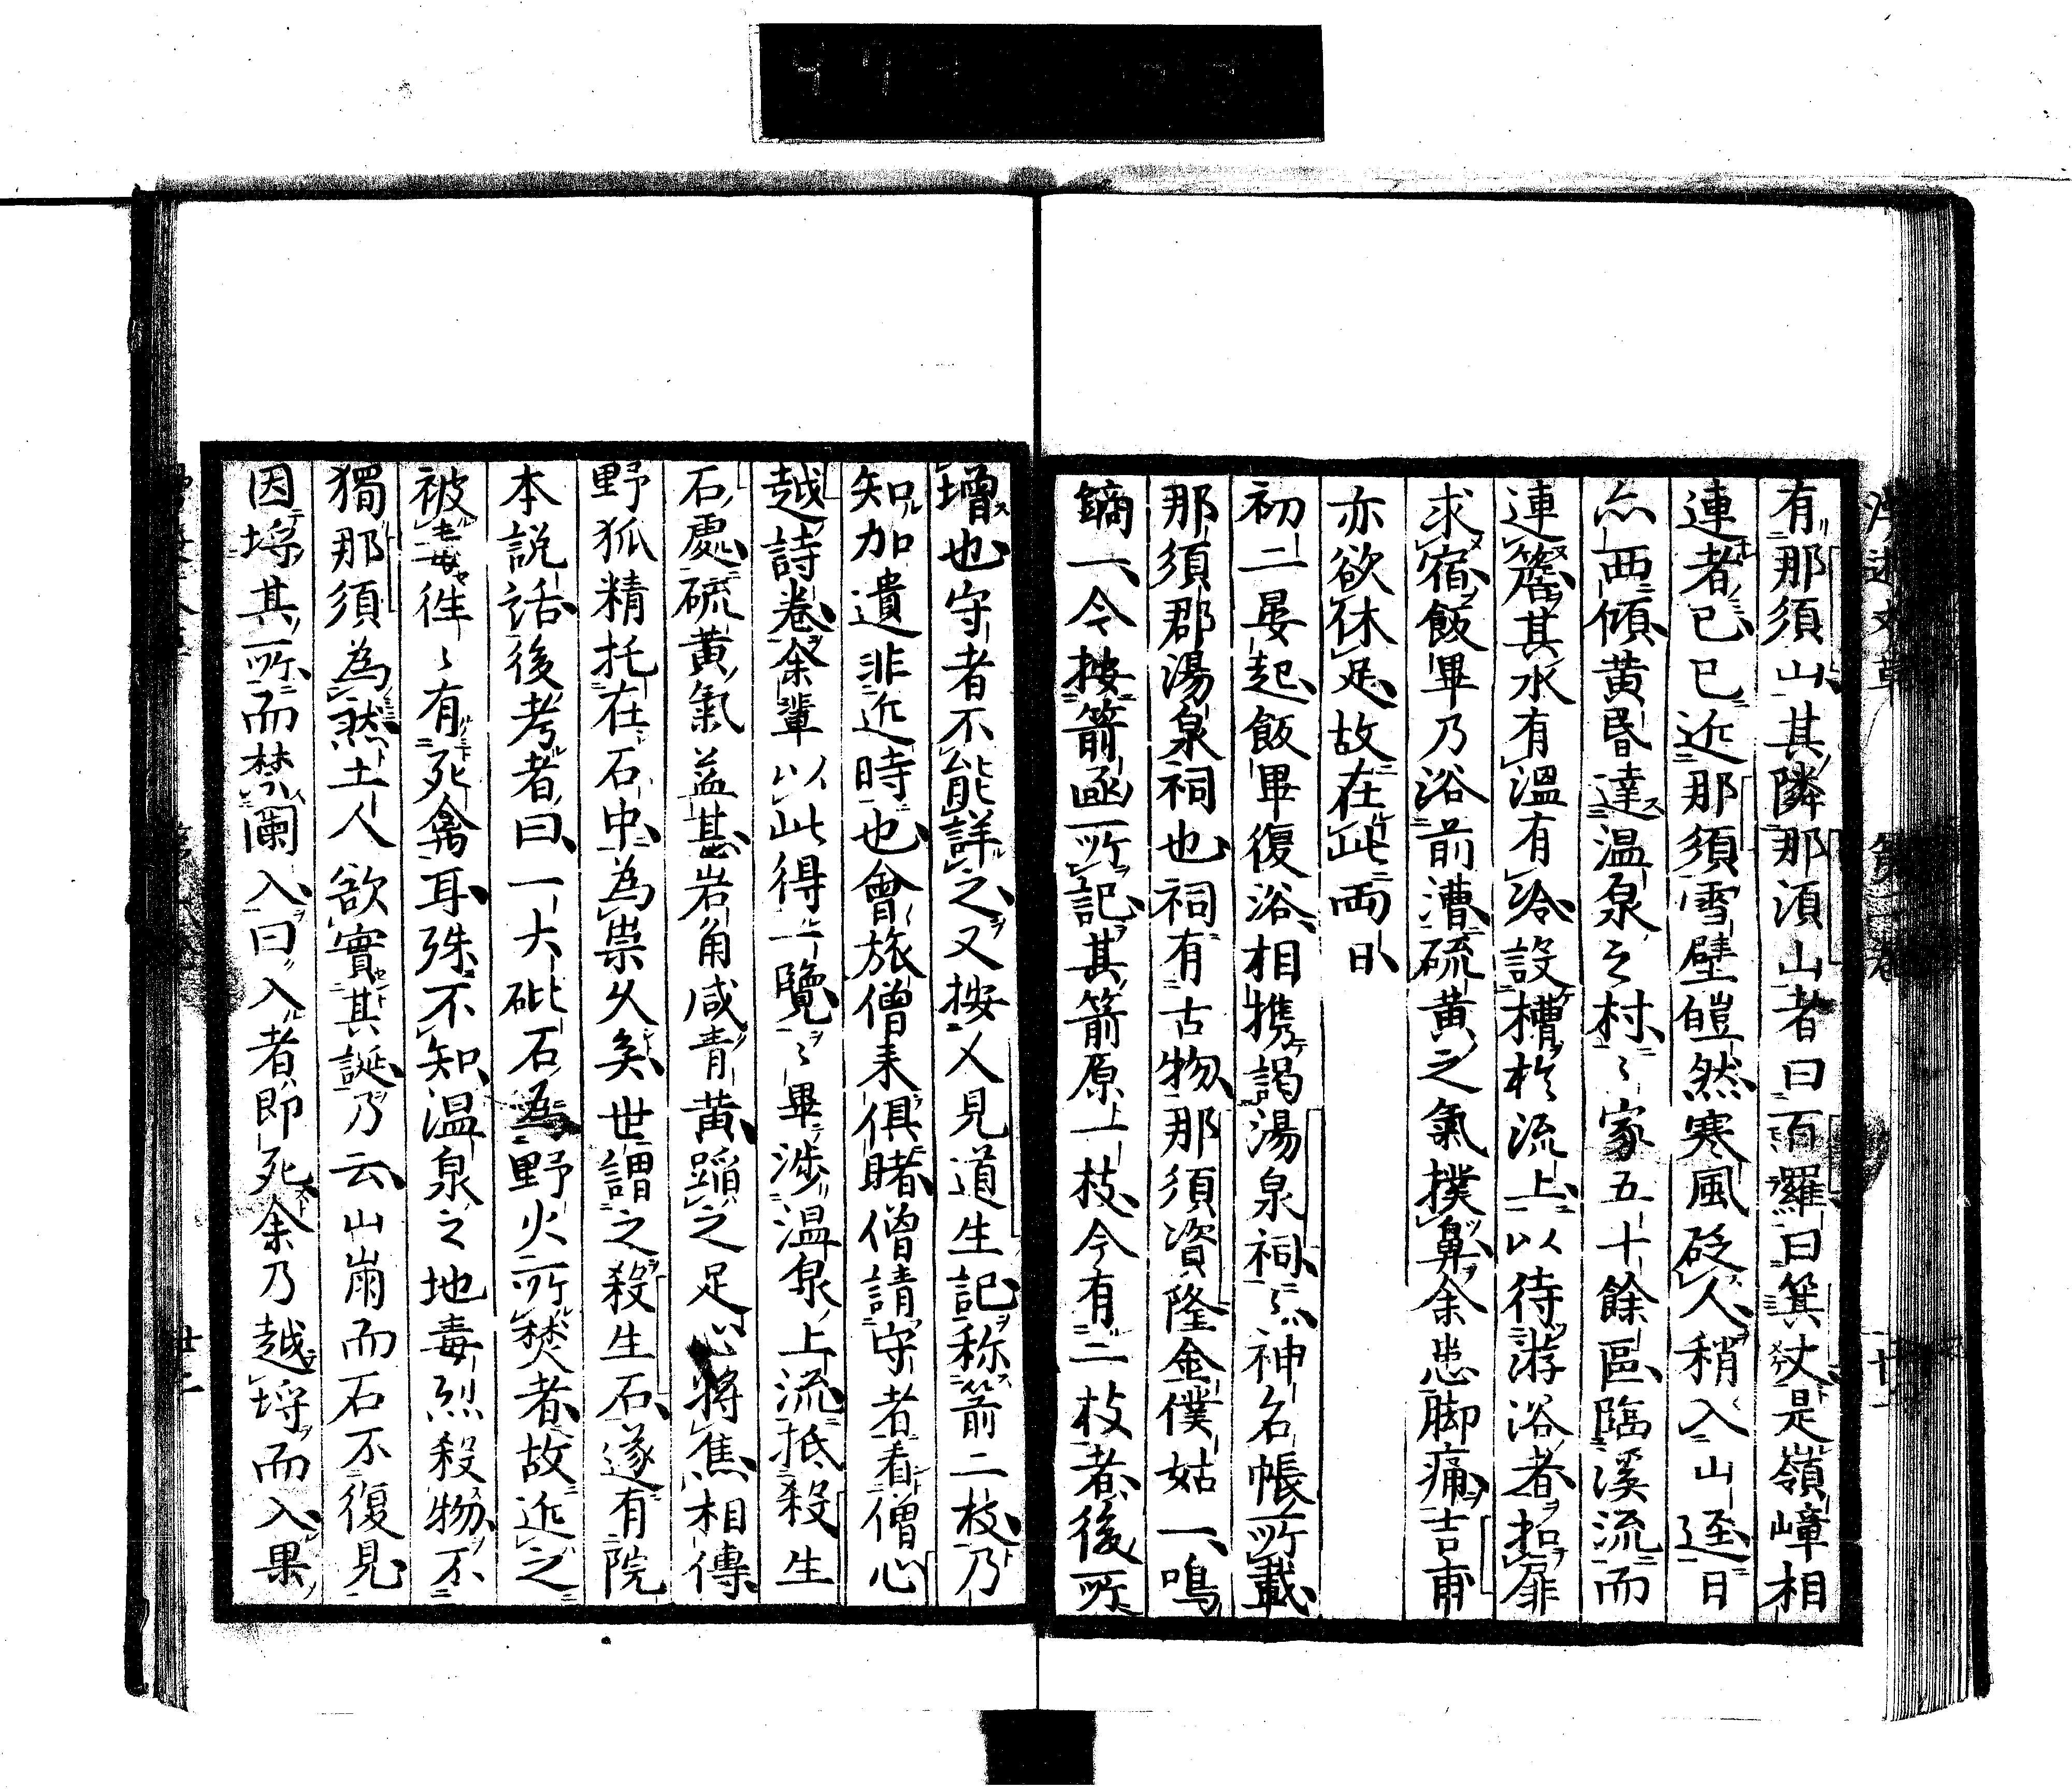 有那須山其隣那須山者曰百羅曰箕杖是嶺嶂相
連者已巳近那須雪壁皚然寒風砭人稍入山逕日
点西傾黄昏達温泉之村〻家五十餘區臨溪流而
連簷其水有溫有冷設槽於流上以待游浴者扣扉
求宿飯畢乃浴前漕硫黄之氣撲鼻余患脚痛吉甫
亦欲休足故在此両日
初二晏起飯畢復浴相携謁湯泉祠〻神名帳所載
那須郡湯泉祠也祠有古物那須資隆金僕姑一鳴
鏑一今按箭凾所記其箭原一枝今有二枝者後所
增也守者不能詳之又按人見道生記称箭二枝乃
知加遺非近時也會旅僧来俱睹僧請守者看僧心
越詩卷余輩以此得一覽〻畢渉温泉上流抵殺生
石處硫黄氣益甚岩角咸青黄蹈之足心将焦相傳
野狐精托在石中為祟久矣世謂之殺生石遂有院
本説話後考者曰一大砒石為野火所焚者故近之
被毒徃〻有死禽耳殊不知温泉之地毒烈殺物不
獨那須為然土人欲實其誕乃云山崩而石不復見
因埒其所而禁闌入曰入者即死余乃越埒而入果